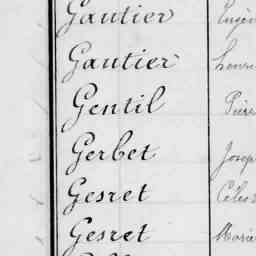 Gautier Eugèn
Gautier Henri
Gentil Pierre
Gerbet Josep
Gesret Céles
Gesret Marie